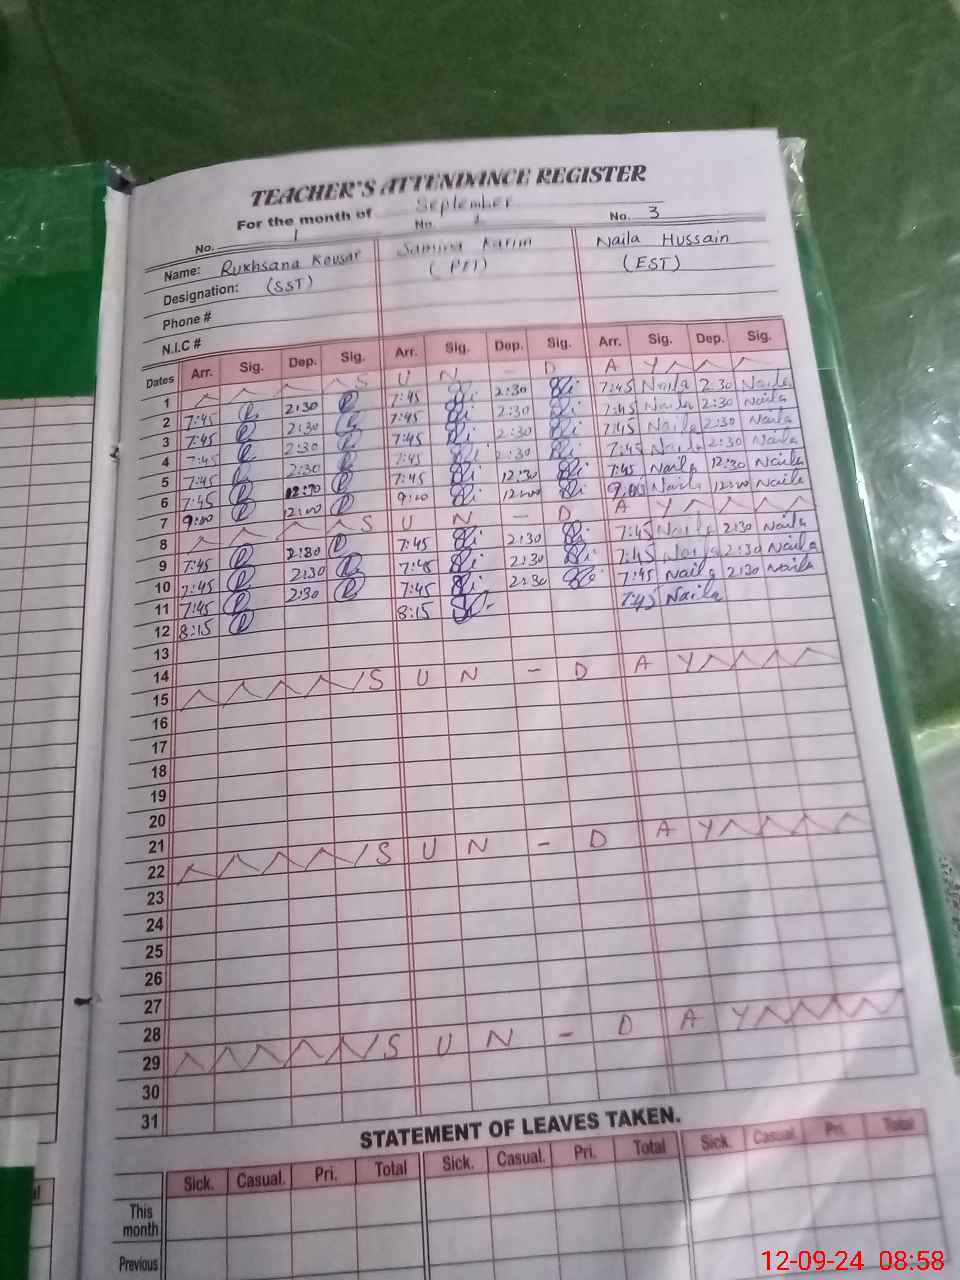 TEACHER'S ATTENDANCE REGISTER
For the month of September
No. 1 No. 2 No. 3
Name: Rukhsana Kousar Samina Karim Naila Hussain
Designation: (SST) (EST)
Phone #
N.I.C #
Dates Arr. Sig. Dep. Sig. Arr. Sig. Dep. Sig. Arr. Sig. Dep. Sig.
1 S U N - D A Y
2 7:45 2:30 7:45 2:30 7:45 Naila 2:30 Naila
3 7:45 2:30 7:45 2:30 7:45 Naila 2:30 Naila
4 7:45 2:30 7:45 2:30 7:45 Naila 2:30 Naila
5 7:45 2:30 7:45 2:30 7:45 Naila 2:30 Naila
6 7:45 12:30 7:45 12:30 7:45 Naila 12:30 Naila
7 9:00 12:00 9:00 12:00 9:00 Naila 12:00 Naila
8 S U N - D A Y
9 7:45 2:30 7:45 2:30 7:45 Naila 2:30 Naila
10 7:45 2:30 7:45 2:30 7:45 Naila 2:30 Naila
11 7:45 2:30 7:45 2:30 7:45 Naila 2:30 Naila
12 8:15 8:15 7:45 Naila
13
14
15 S U N - D A Y
16
17
18
19
20
21
22 S U N - D A Y
23
24
25
26
27
28
29 S U N - D A Y
30
31
STATEMENT OF LEAVES TAKEN.
Sick. Casual. Pri. Total Sick. Casual. Pri. Total Sick. Casual. Pri. Total
This
month
Previous
12-09-24 08:58